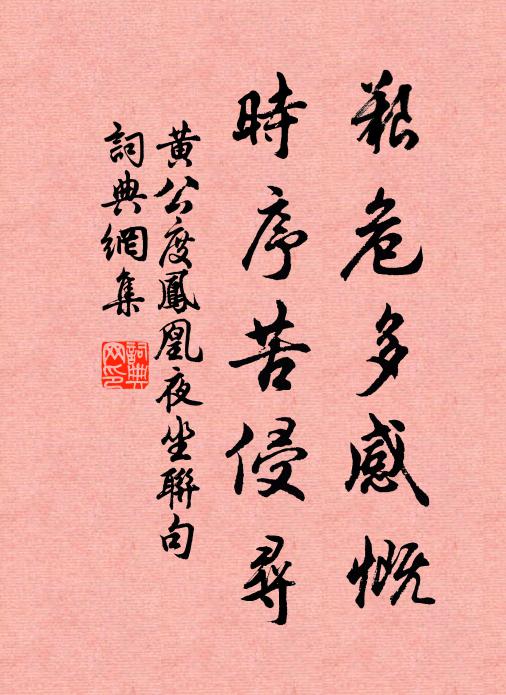 艱危多感慨
時序苦侵尋
黃公度鳳凰夜坐聯句
詞典網集
詞典網印